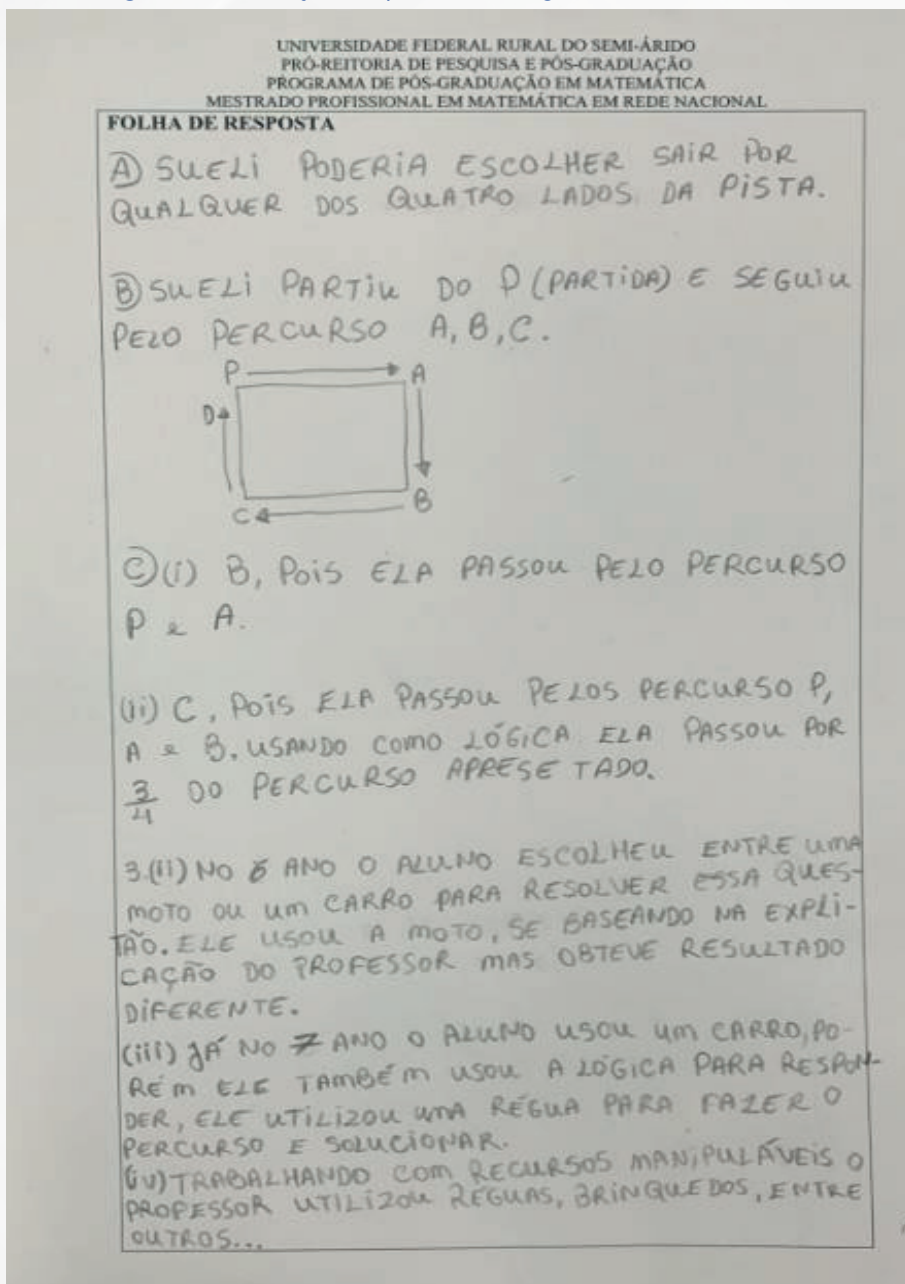 UNIVERSIDADE FEDERAL RURAL DO SEMI-ÁRIDO
PRÓ-REITORIA DE PESQUISA E PÓS-GRADUAÇÃO
PROGRAMA DE PÓS-GRADUAÇÃO EM MATEMÁTICA
MESTRADO PROFISSIONAL EM MATEMÁTICA EM REDE NACIONAL
FOLHA DE RESPOSTA
A) SUELI PODERIA ESCOLHER SAIR POR
QUALQUER DOS QUATRO LADOS DA PISTA.
B) SUELI PARTIU DO P (PARTIDA) E SEGUIU
PELO PERCURSO A, B, C.
P A
D
C B
C) (i) B, POIS ELA PASSOU PELO PERCURSO
P e A.
(ii) C, POIS ELA PASSOU PELOS PERCURSO P,
A e B. USANDO COMO LÓGICA ELA PASSOU POR
3/4 DO PERCURSO APRESE TADO.
3.(ii) NO 6 ANO O ALUNO ESCOLHEU ENTRE UMA
MOTO OU UM CARRO PARA RESOLVER ESSA QUES-
TÃO. ELE USOU A MOTO, SE BASEANDO NA EXPLI-
CAÇÃO DO PROFESSOR MAS OBTEVE RESULTADO
DIFERENTE.
(iii) JÁ NO 7 ANO O ALUNO USOU UM CARRO, PO-
RÉM ELE TAMBÉM USOU A LÓGICA PARA RESPON-
DER, ELE UTILIZOU UMA RÉGUA PARA FAZER O
PERCURSO E SOLUCIONAR.
(iv) TRABALHANDO COM RECURSOS MANIPULÁVEIS O
PROFESSOR UTILIZOU RÉGUAS, BRINQUEDOS, ENTRE
OUTROS...